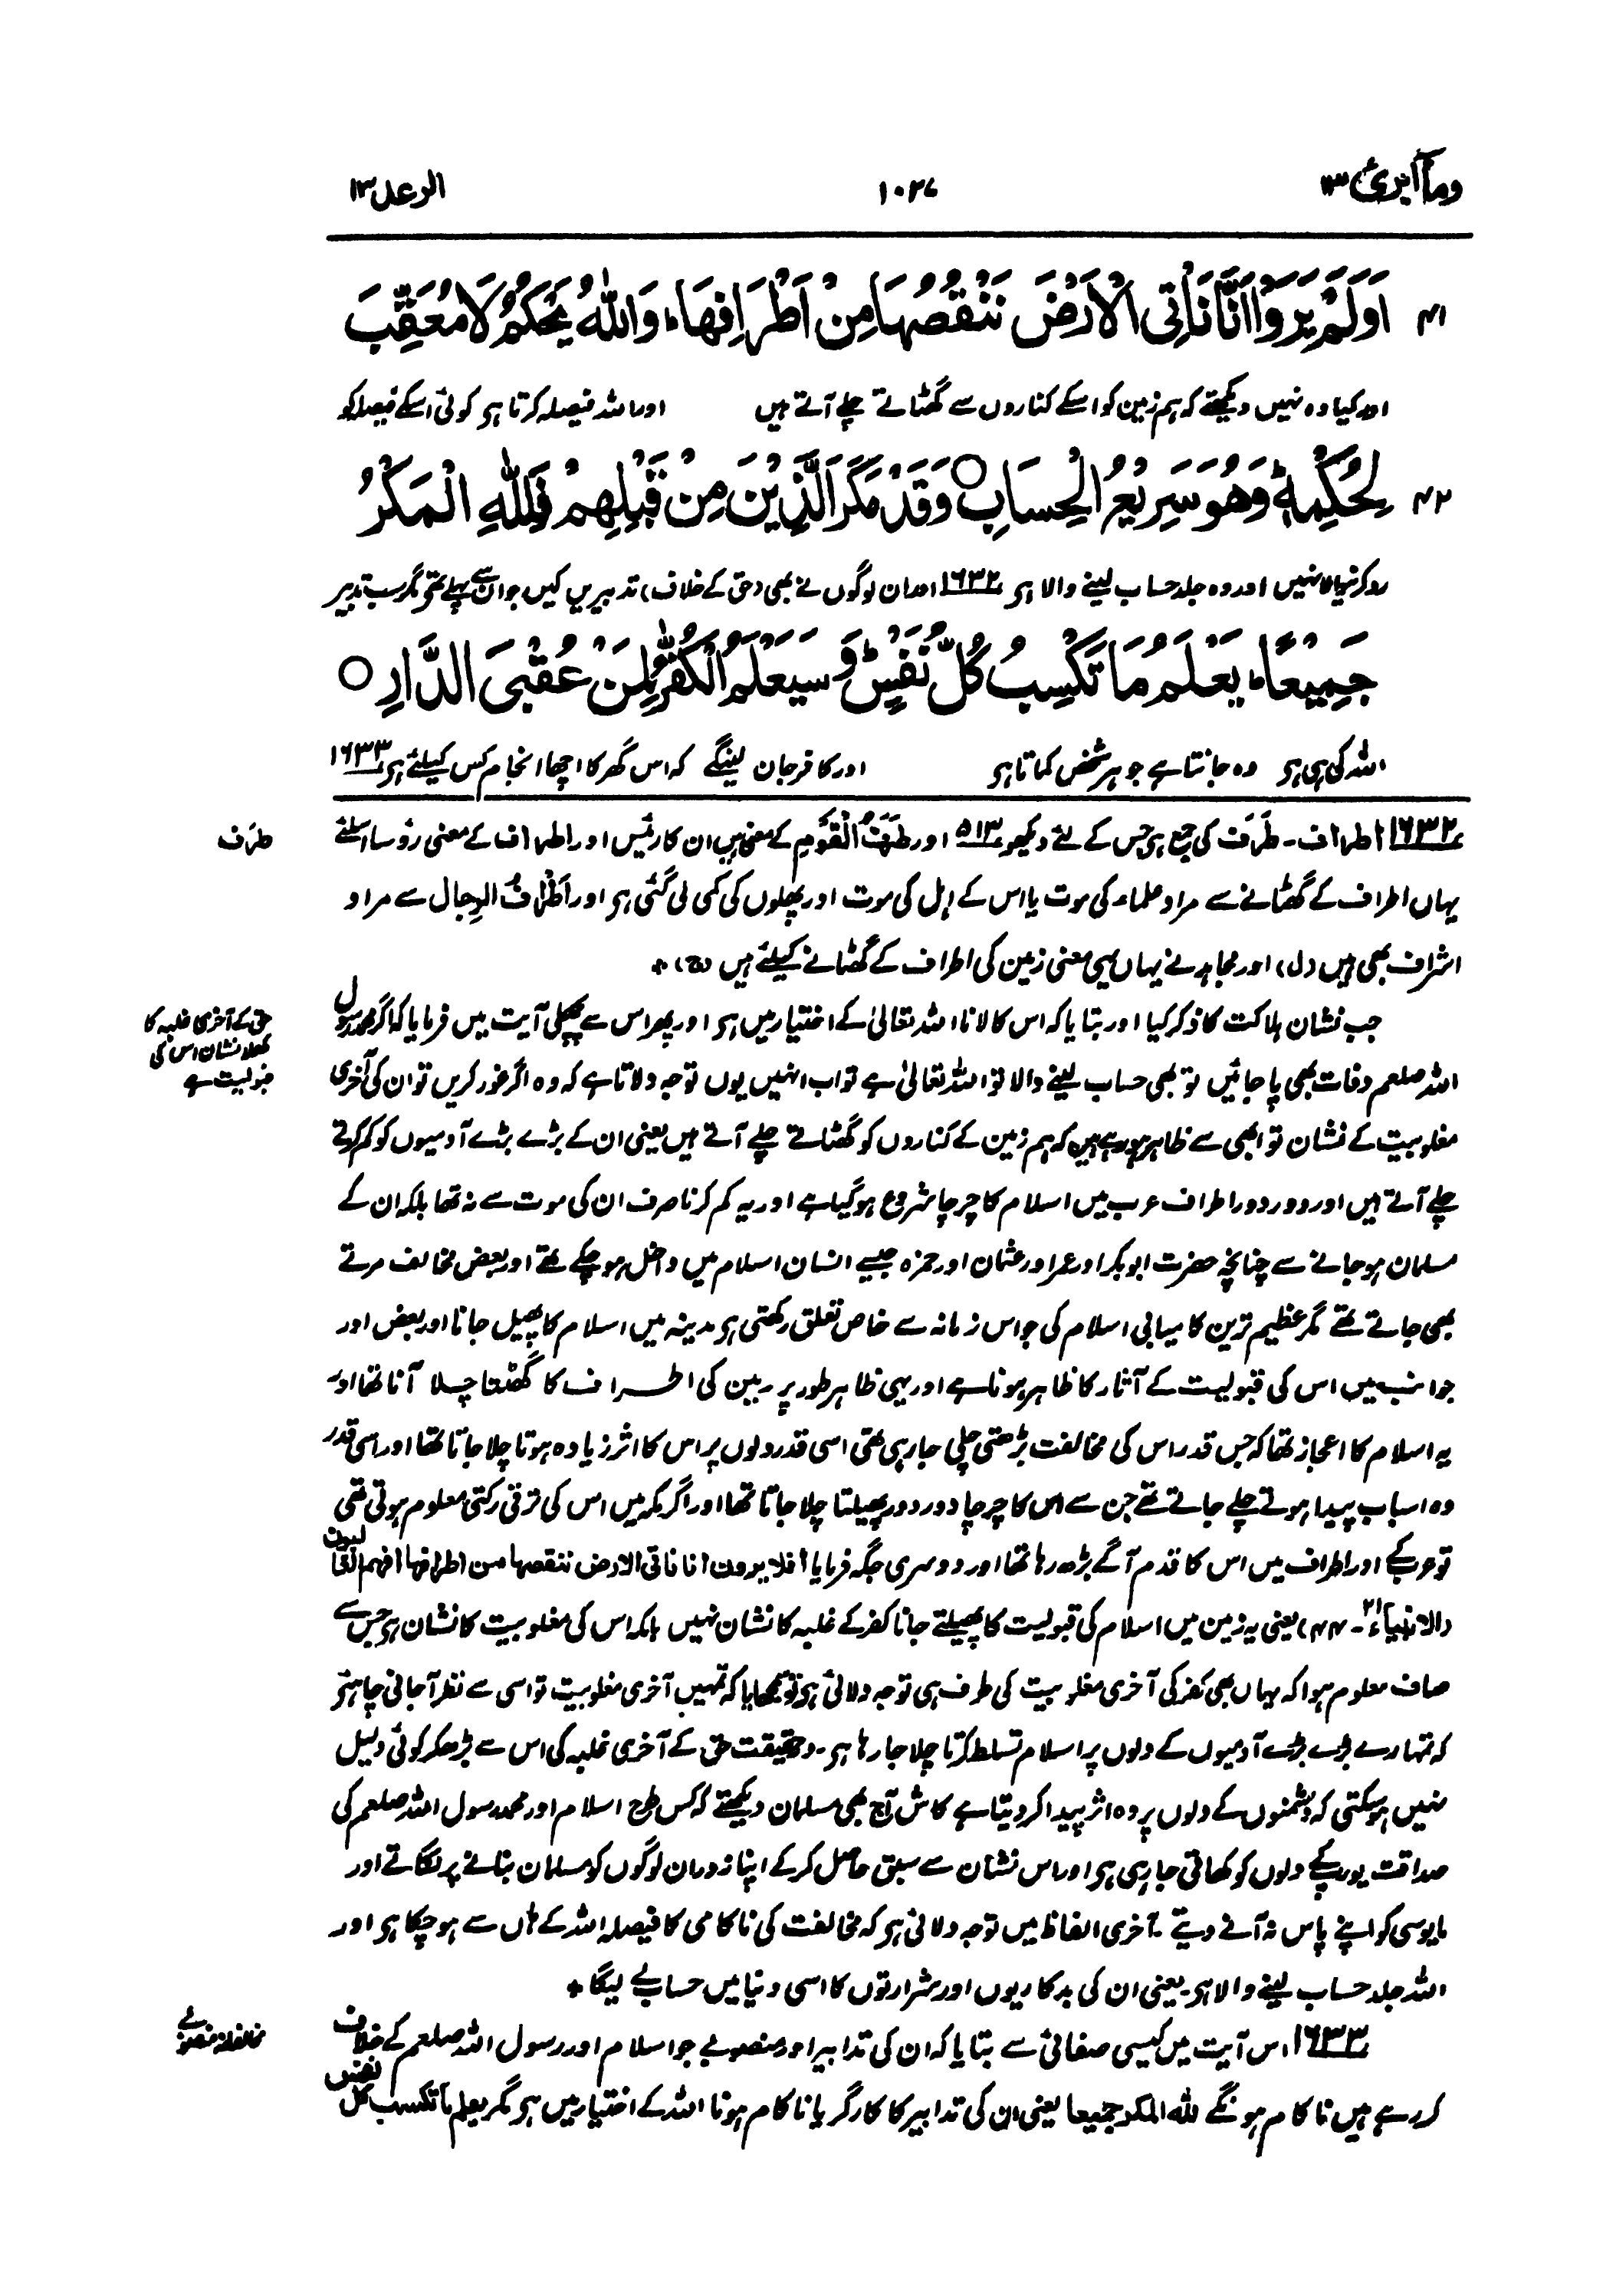 وماۤ ابرئ ۱۳
۱۰۲۷
الرعد ۱۳
۴۱ اَوَلَمْ يَرَوْا اَنَّا نَاْتِي الْاَرْضَ نَنْقُصُهَا مِنْ اَطْرَافِهَا ؕ وَاللّٰهُ يَحْكُمُ لَا مُعَقِّبَ
اور کیا وہ نہیں دیکھتے کہ ہم زمین کو اسکے کناروں سے گھٹاتے چلے آتے ہیں اور اللہ فیصلہ کرتا ہر کوئی اسکے فیصلہ کو
۴۲ لِحُكْمِهٖ ؕ وَهُوَ سَرِيْعُ الْحِسَابِ ○ وَقَدْ مَكَرَ الَّذِيْنَ مِنْ قَبْلِهِمْ فَلِلّٰهِ الْمَكْرُ
روکرنیوالا نہیں اور وہ جلد حساب لینے والا ہر ۱۶۳۲ اور ان لوگوں نے بھی (حق کے خلاف) تدبیریں کیں جو ان سے پہلے تھے مگر سب تدبیر
جَمِيْعًا ؕ يَعْلَمُ مَا تَكْسِبُ كُلُّ نَفْسٍ ؕ وَ سَيَعْلَمُ الْكُفّٰرُ لِمَنْ عُقْبَى الدَّارِ ○
اللہ کی ہی ہر وہ جانتا ہے جو ہر شخص کماتا ہر اور کافر جان لینگے کہ اس گھر کا اچھا انجام کس کیلئے ہر ۱۶۳۳
۱۶۳۲ اطراف۔ طَرَف کی جمع ہر جس کے لئے دیکھو ۵۱۳ اور طَرَفُ الْقَوْمِ کے معنی ہیں ان کا رئیس اور اطراف کے معنی رؤسا اسلئے
طرف
یہاں اطراف کے گھٹانے سے مراد علماء کی موت یا اس کے اہل کی موت اور پھلوں کی کمی لی گئی ہر اور اَطْرَافُ الرِجال سے مراد
اشراف بھی ہیں (ل) اور مجاہد نے یہاں یہی معنی زمین کی اطراف کے گھٹانے کیلئے ہیں (ج) +
جب نشان ہلاکت کا ذکر کیا اور بتایا کہ اس کا لانا اللہ تعالیٰ کے اختیار میں ہر اور پھر اس سے پچھلی آیت میں فرمایا کہ اگر محمد رسول
حق کے آخری غلبہ کا
کھلا نشان اس کی
قبولیت ہے
اللہ صلعم وفات بھی پا جائیں تو بھی حساب لینے والا تو اللہ تعالیٰ ہے تو اب انہیں یوں توجہ دلاتا ہے کہ وہ اگر غور کریں تو ان کی آخری
مغلوبیت کے نشان تو ابھی سے ظاہر ہو رہے ہیں کہ ہم زمین کے کناروں کو گھٹاتے چلے آتے ہیں یعنی ان کے بڑے بڑے آدمیوں کو کم کرتے
چلے آتے ہیں اور دور دور اطراف عرب میں اسلام کا چرچا شروع ہو گیا ہے اور یہ کم کرنا صرف ان کی موت سے نہ تھا بلکہ ان کے
مسلمان ہو جانے سے چنانچہ حضرت ابوبکر اور عمر اور عثمان اور حمزہ جیسے انسان اسلام میں داخل ہو چکے تھے اور بعض مخالف مرتے
بھی جاتے تھے مگر عظیم ترین کامیابی اسلام کی جو اس زمانہ سے خاص تعلق رکھتی ہر مدینہ میں اسلام کا پھیل جانا اور بعض اور
جوانب میں اس کی قبولیت کے آثار کا ظاہر ہونا ہے اور یہی ظاہر طور پر زمین کی اطراف کا گھٹتا چلا آنا تھا اور
یہ اسلام کا اعجاز تھا کہ جس قدر اس کی مخالفت بڑھتی چلی جا رہی تھی اسی قدر دلوں پر اس کا اثر زیادہ ہوتا چلا جاتا تھا اور اسی قدر
وہ اسباب پیدا ہوتے چلے جاتے تھے جن سے اس کا چرچا دور دور پھیلتا چلا جاتا تھا اور اگر مکہ میں اس کی ترقی رکتی معلوم ہوتی تھی
تو عرب کے اور اطراف میں اس کا قدم آگے بڑھ رہا تھا اور دوسری جگہ فرمایا افلا یرون انا ناتی الارض ننقصہا من اطرافہا افہم الغالبون
(الانبیاۤء ۲۱۔ ۴۴) یعنی یہ زمین میں اسلام کی قبولیت کا پھیلتے جانا کفر کے غلبہ کا نشان نہیں بلکہ اس کی مغلوبیت کا نشان ہر جس سے
صاف معلوم ہوا کہ یہاں بھی کفر کی آخری مغلوبیت کی طرف ہی توجہ دلائی ہر تو سمجھایا کہ تمہیں آخری مغلوبیت تو اسی سے نظر آجانی چاہئے
کہ تمہارے بڑے بڑے آدمیوں کے دلوں پر اسلام تسلط کرتا چلا جا رہا ہر۔ درحقیقت حق کے آخری غلبہ کی اس سے بڑھکر کوئی دلیل
نہیں ہو سکتی کہ دشمنوں کے دلوں پر وہ اثر پیدا کر دیتا ہے کاش آج بھی مسلمان دیکھتے کہ کس طرح اسلام اور محمد رسول اللہ صلعم کی
صداقت یورپ کے دلوں کو کھاتی جا رہی ہر اور اس نشان سے سبق حاصل کر کے اپنا زور ان لوگوں کو مسلمان بنانے پر لگاتے اور
مایوسی کو اپنے پاس نہ آنے دیتے۔ آخری الفاظ میں توجہ دلائی ہر کہ مخالفت کی ناکامی کا فیصلہ اللہ کے ہاں سے ہو چکا ہر اور
اللہ جلد حساب لینے والا ہر یعنی ان کی بدکاریوں اور شرارتوں کا اسی دنیا میں حساب لے لیگا +
۱۶۳۳ اس آیت میں کیسی صفائی سے بتایا کہ ان کی تدابیر اور منصوبے جو اسلام اور رسول اللہ صلعم کے خلاف
مخالفانہ منصوبے
کر رہے ہیں ناکام ہونگے للہ المکر جمیعا یعنی ان کی تدابیر کا کارگر یا ناکام ہونا اللہ کے اختیار میں ہر مگر یعلم ما تکسب کل نفس